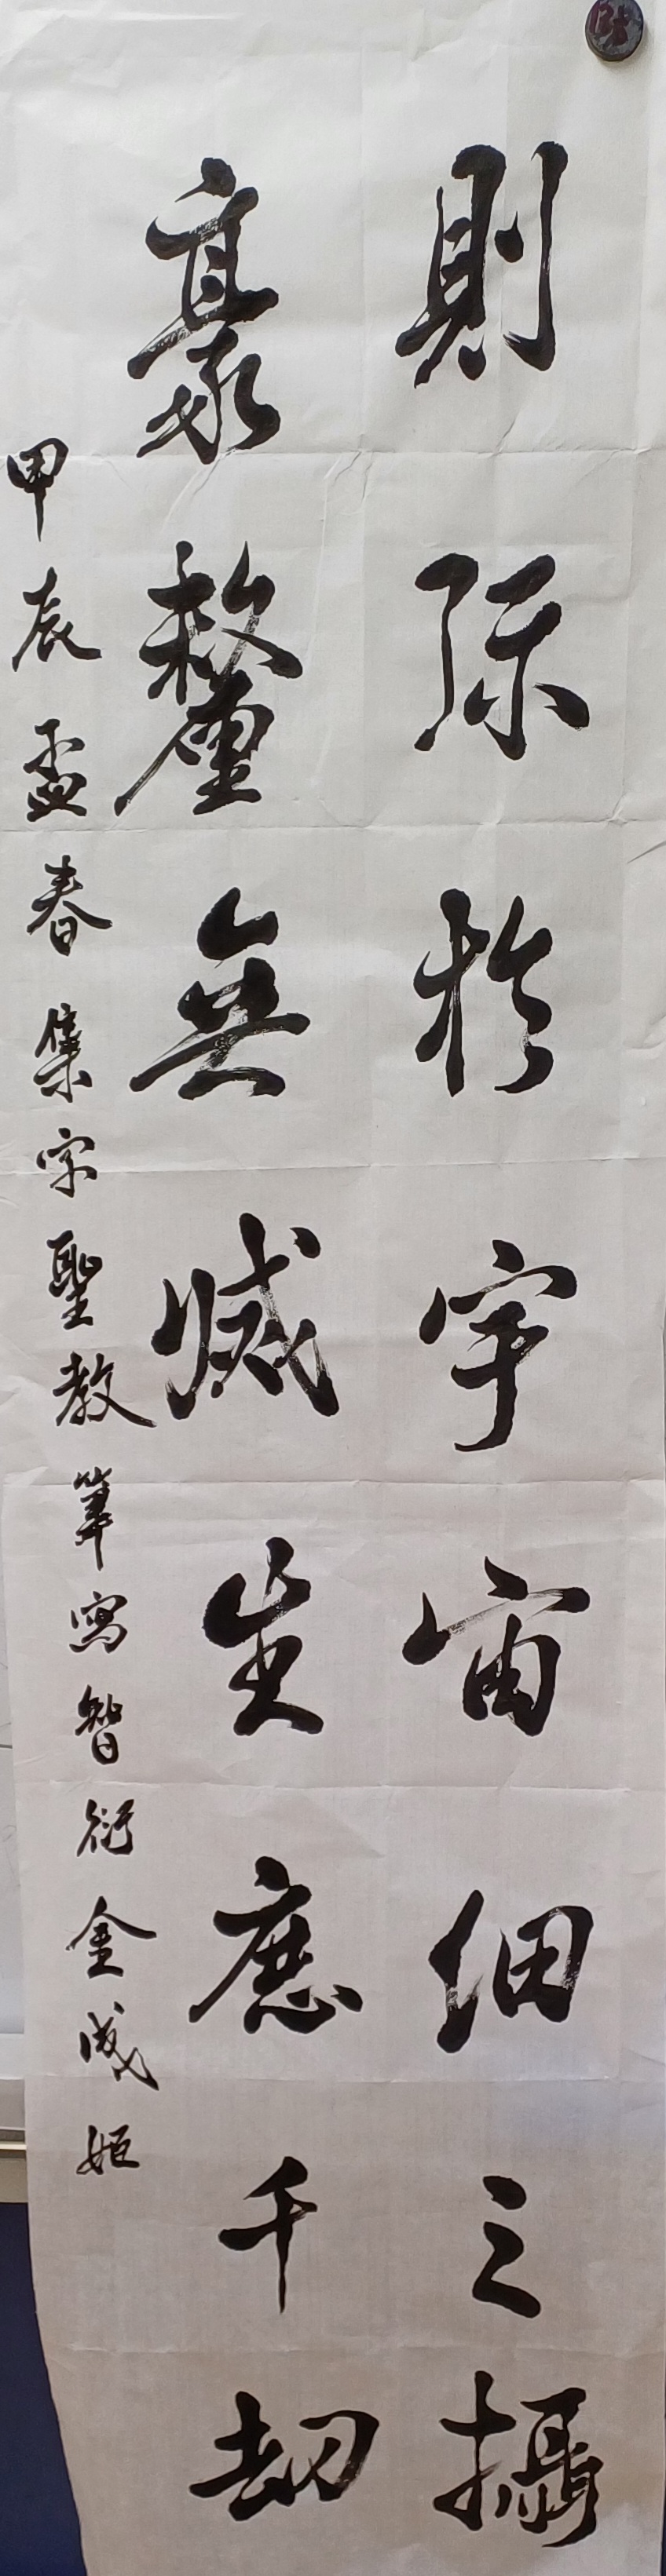 則弥於宇宙細之攝
豪釐無滅無生歷千劫
甲辰孟春集字聖教筆寫智衍金成姬